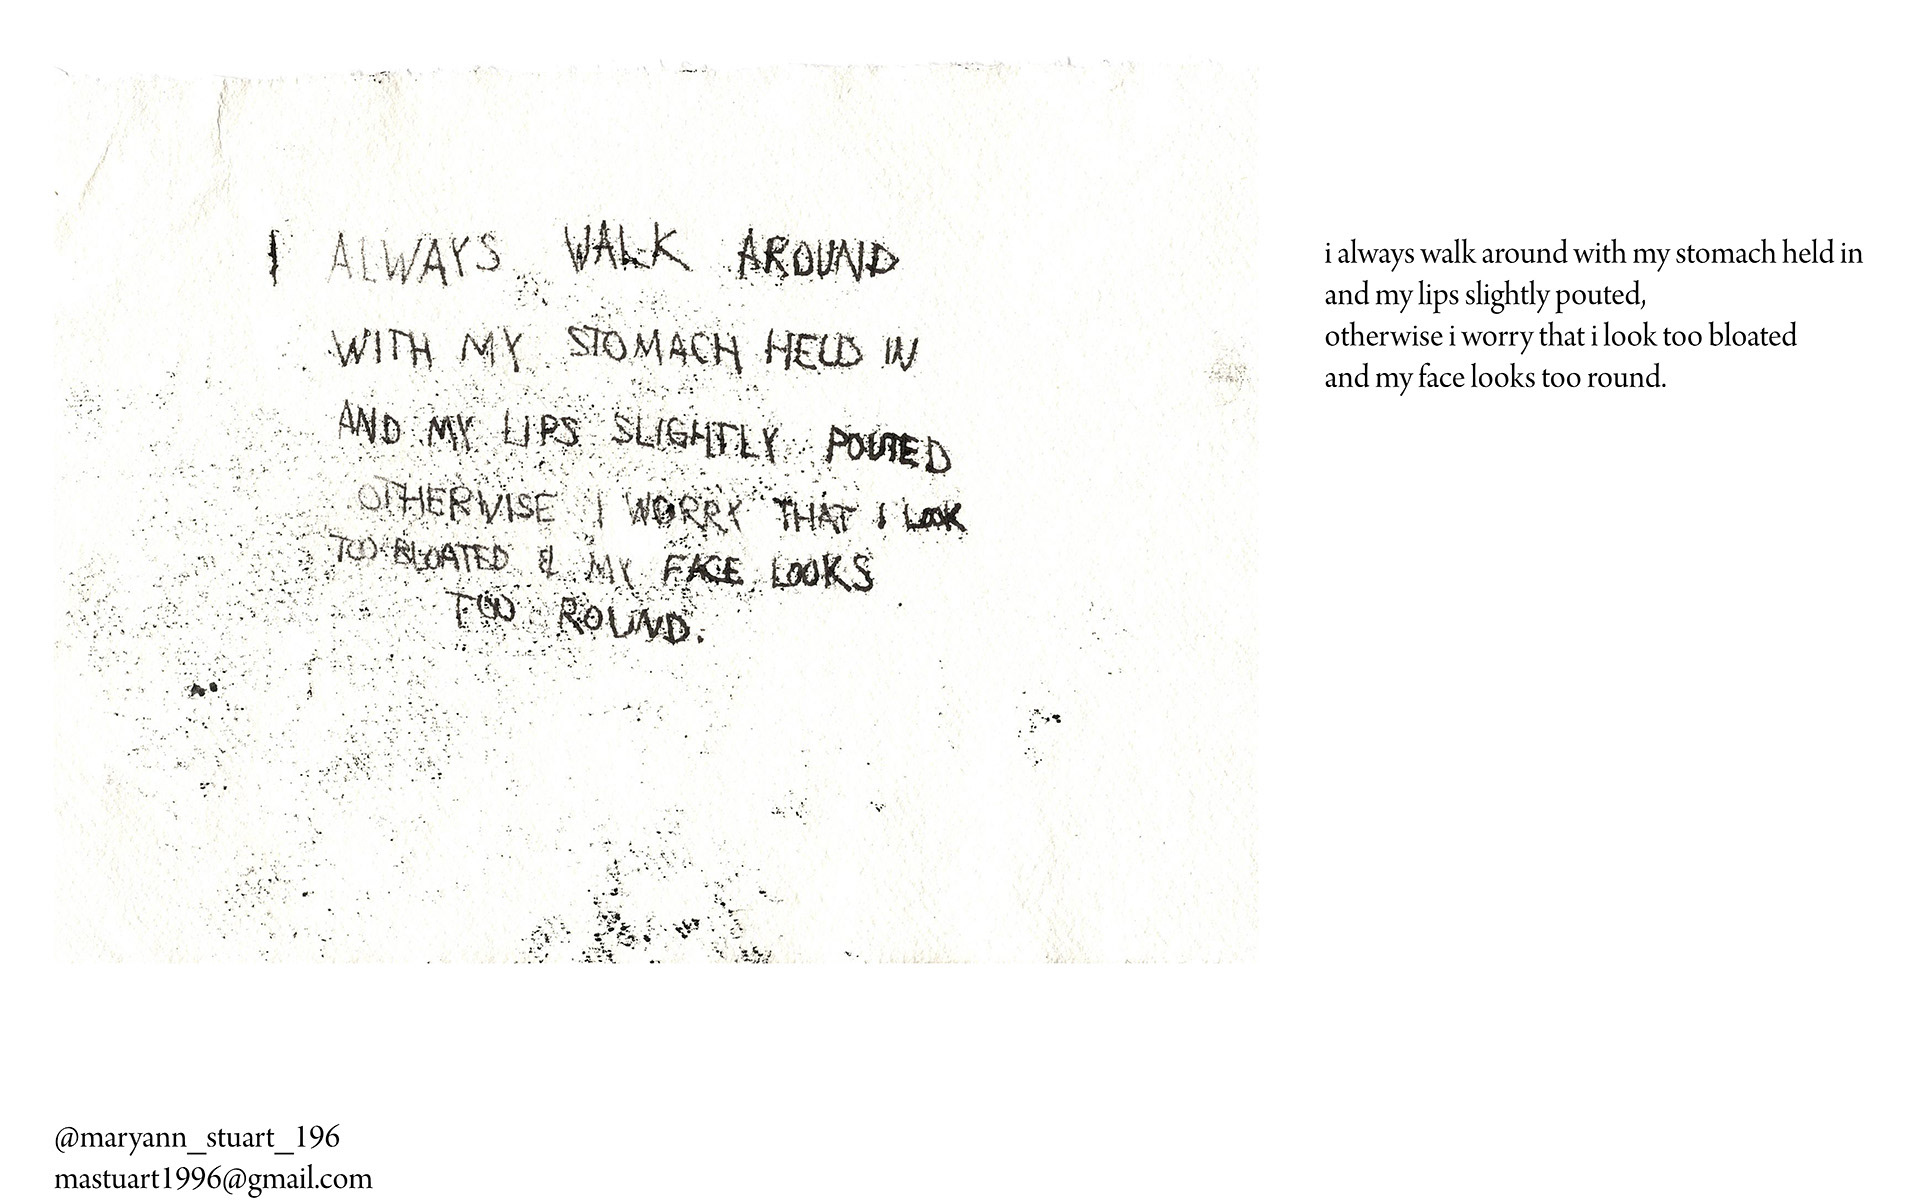 I ALWAYS WALK AROUND
WITH MY STOMACH HELD IN
AND MY LIPS SLIGHTLY POUTED
OTHERWISE I WORRY THAT I LOOK
TOO BLOATED & MY FACE LOOKS
TOO ROUND.
i always walk around with my stomach held in
and my lips slightly pouted,
otherwise i worry that i look too bloated
and my face looks too round.
@maryann_stuart_196
mastuart1996@gmail.com